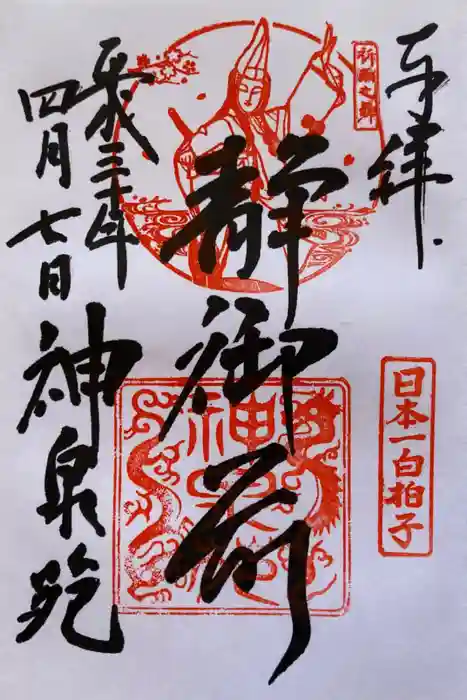 奉拝
祈雨之舞
日本一白拍子
静御前
神泉苑
平成三十年
四月七日
神泉苑